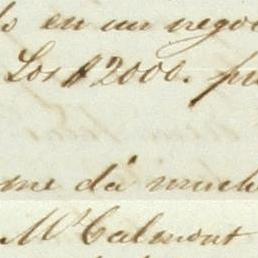 en un nego
Los $2000. p
me dá much
Mr. Calmont